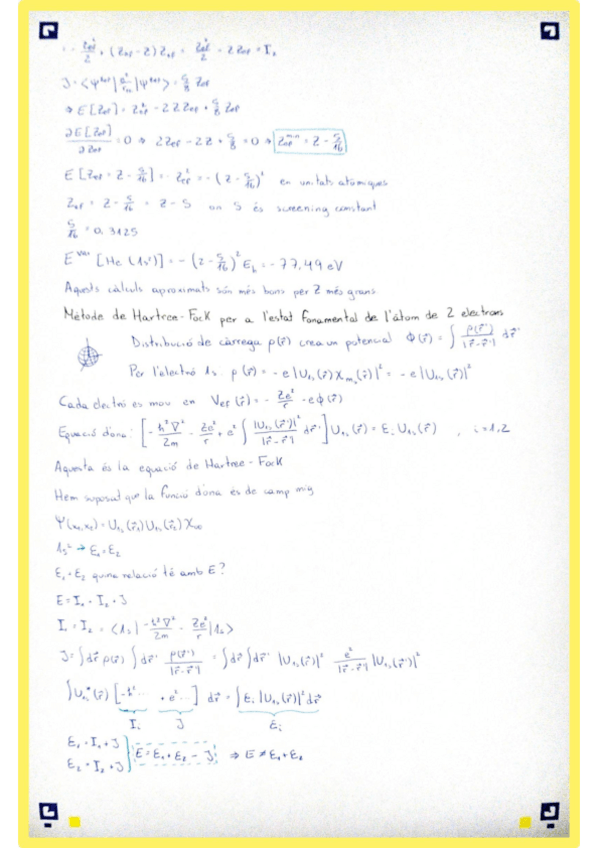 ... = Zef²/2 + (Zef - Z) Zef = Zef²/2 - Z Zef = I₁
J = <ψᵗᵒᵗ| e²/r₁₂ |ψᵗᵒᵗ> = 5/8 Zef
⇒ E[Zef] = Zef² - 2Z Zef + 5/8 Zef
∂E[Zef]/∂Zef = 0 ⇒ 2Zef - 2Z + 5/8 = 0 ⇒ Zefᵐⁱⁿ = Z - 5/16
E[Zef = Z - 5/16] = -Zef² = -(Z - 5/16)² en unitats atòmiques
Zef = Z - 5/16 = Z - S on S és screening constant
5/16 = 0,3125
Eᵛᵃʳ [He (1s²)] = -(2 - 5/16)² Eₕ = -77,49 eV
Aquests càlculs aproximats són més bons per Z més grans
Mètode de Hartree-Fock per a l'estat fonamental de l'àtom de 2 electrons
Distribució de càrrega ρ(r⃗) crea un potencial Φ(r⃗) = ∫ ρ(r⃗')/|r⃗-r⃗'| dr⃗'
Per l'electró 1s: ρ(r⃗) = -e|U₁ₛ(r⃗) Xₘₛ(r⃗)|² = -e|U₁ₛ(r⃗)|²
Cada electró es mou en Vef(r⃗) = -Ze²/r - eΦ(r⃗)
Equació d'ona: [-ħ²∇²/2m - Ze²/r + e² ∫ |U₁ₛ(r⃗')|²/|r⃗-r⃗'| dr⃗'] U₁ₛ(r⃗) = Eᵢ U₁ₛ(r⃗) , i=1,2
Aquesta és la equació de Hartree-Fock
Hem suposat que la funció d'ona és de camp mig
Ψ(x₁,x₂) = U₁ₛ(r⃗₁) U₁ₛ(r⃗₂) X₀₀
1s² → E₁ = E₂
E₁ = E₂ quina relació té amb E?
E = I₁ + I₂ + J
I₁ = I₂ = <1s| -ħ²∇²/2m - Ze²/r |1s>
J = ∫dr⃗ ρ(r⃗) ∫dr⃗' ρ(r⃗')/|r⃗-r⃗'| = ∫dr⃗ ∫dr⃗' |U₁ₛ(r⃗)|² e²/|r⃗-r⃗'| |U₁ₛ(r⃗')|²
∫U₁ₛ*(r⃗) [-ħ²... + e²...] dr⃗ = ∫Eᵢ |U₁ₛ(r⃗)|² dr⃗
Iᵢ J Eᵢ
E₁ = I₁ + J
E = E₁ + E₂ - J ⇒ E ≠ E₁ + E₂
E₂ = I₂ + J